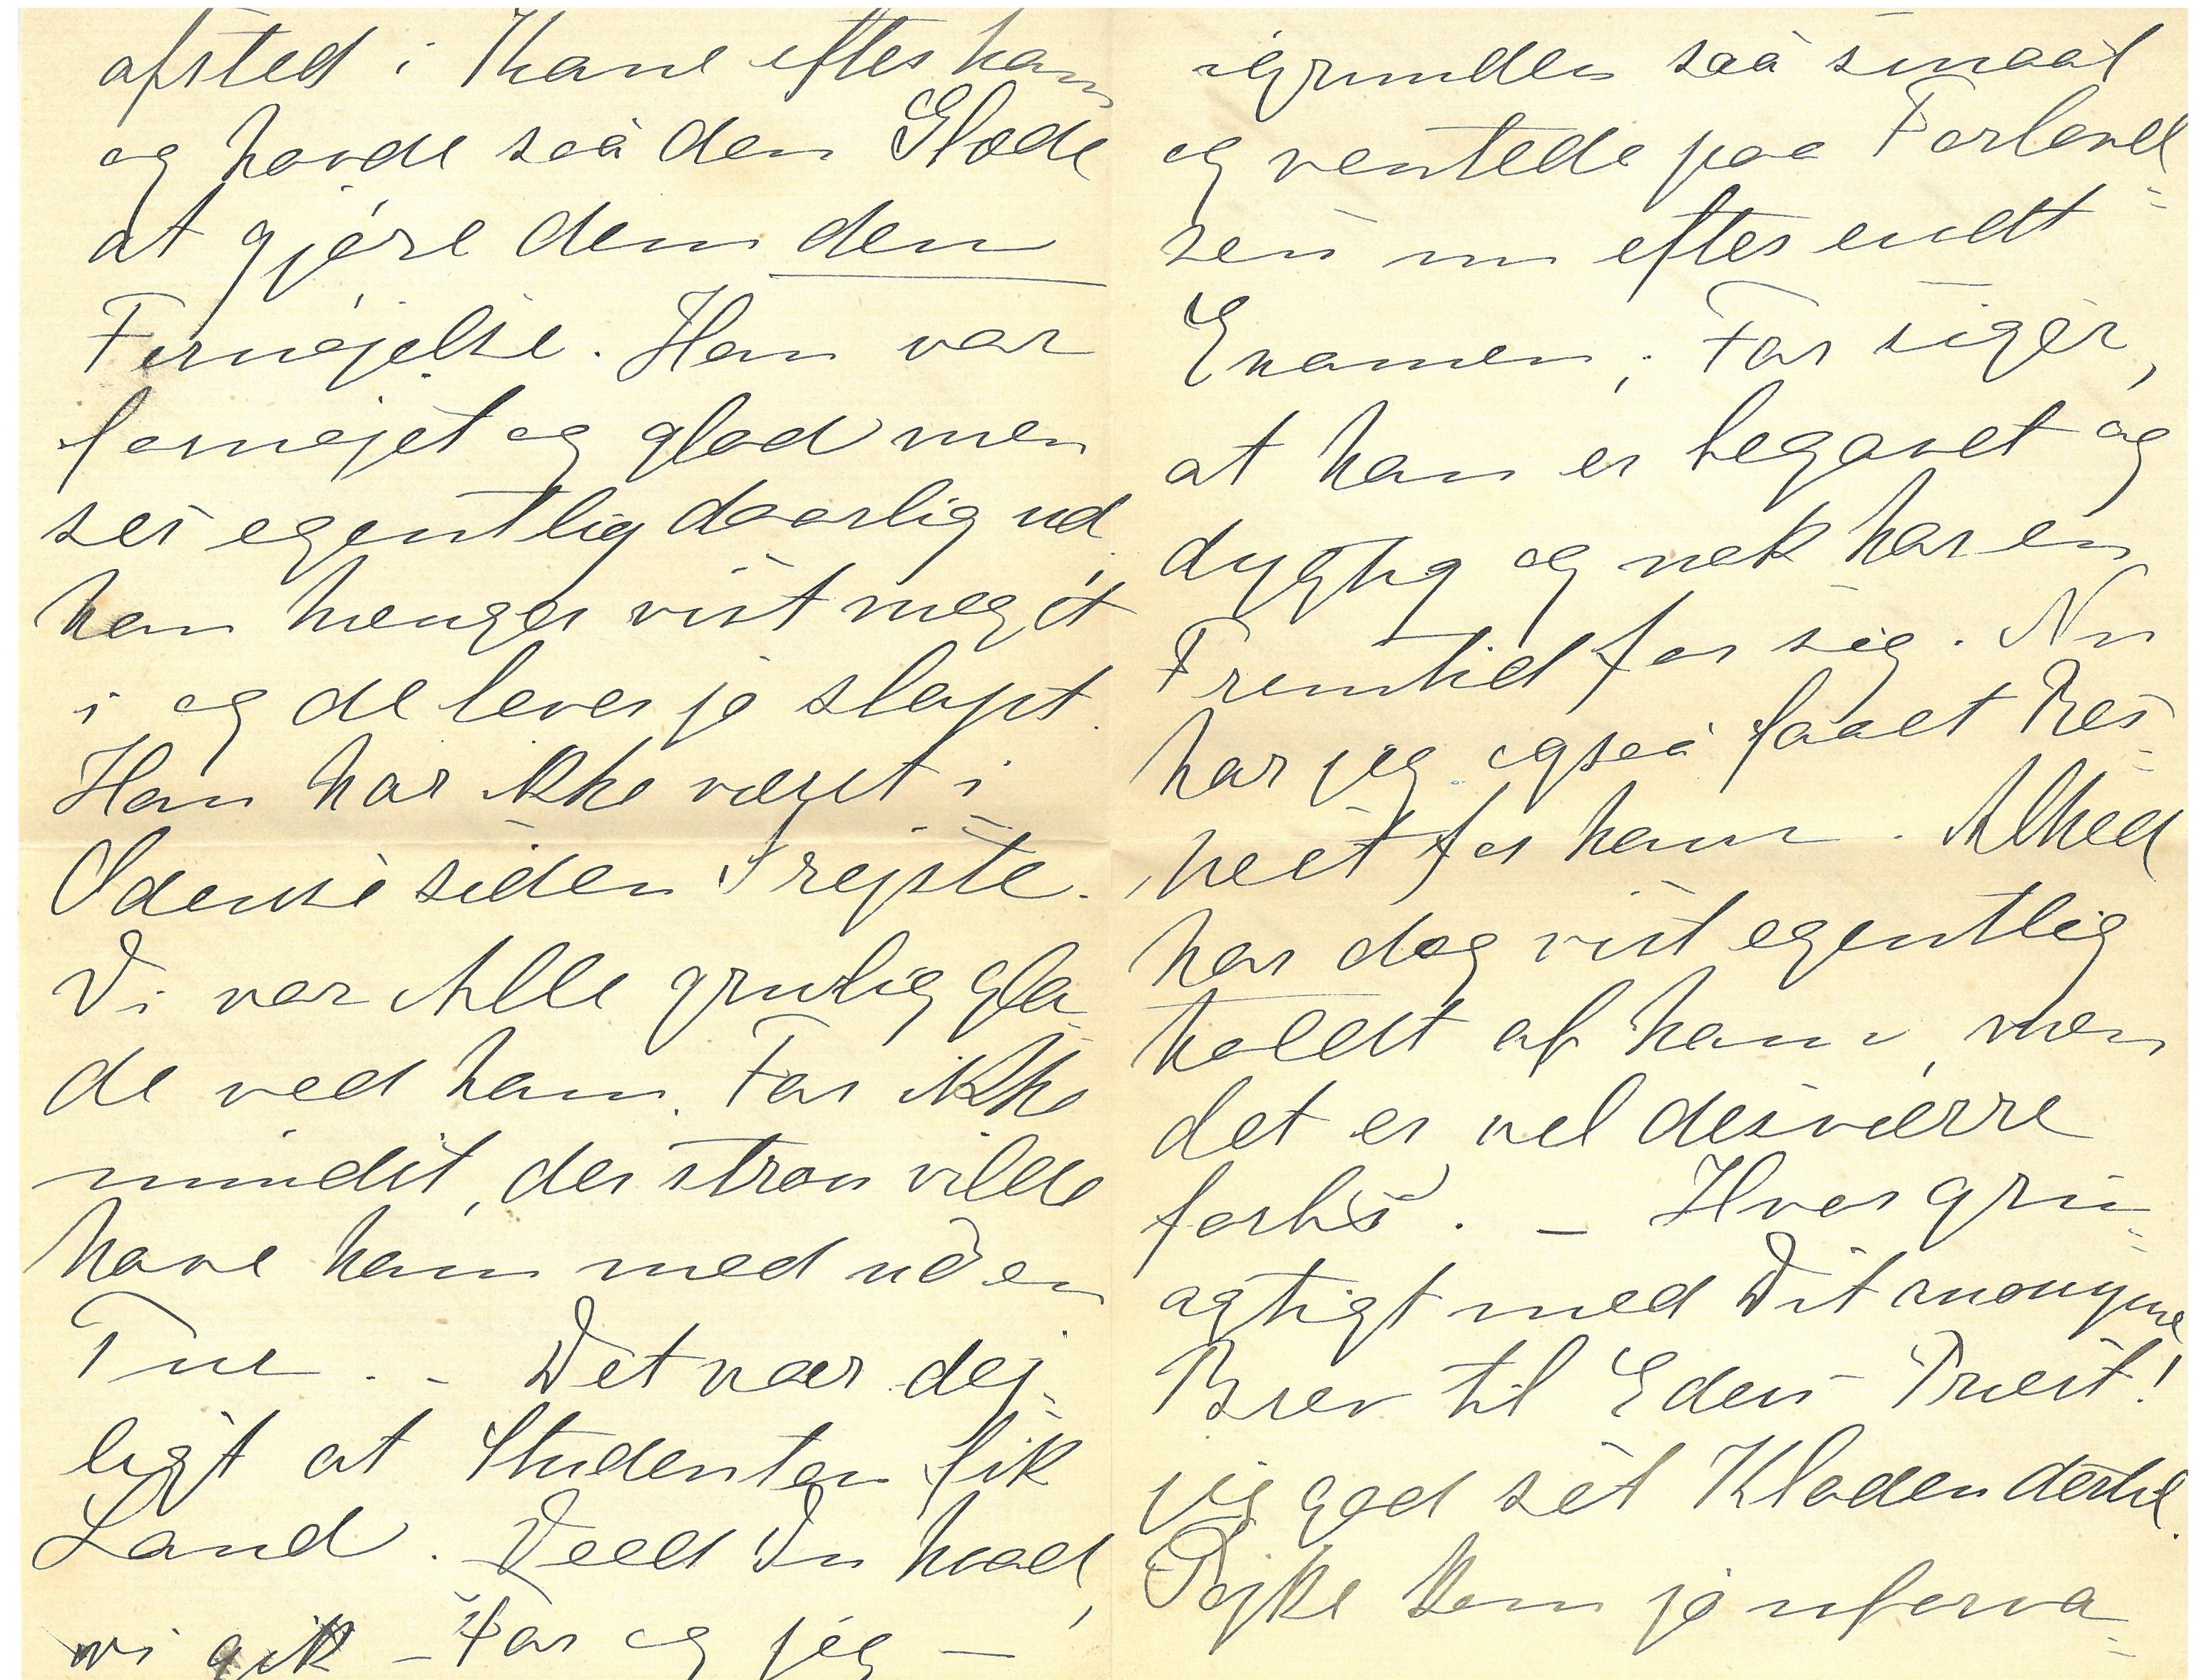 afsted i Kane efter ham
og havde saa den Glæde
at gjøre dem den
Fornøjelse. Han var
fornøjet og glad men
ser egentlig daarlig ud,
han hænger vist meget
i og de lever jo sløjt.
Han har ikke været i
Odense siden I rejste.
Vi var Alle grulig gla-
de ved ham. Far ikke
mindst, der strax vilde
have ham med ud en
Tur. - Det var dej-
ligt at Studenten fik
Land. Veed Du hvad,
vi gik - Far og jeg -
igrunden saa smaat
og ventede paa Forlovel-
sen nu efter endt
Examen; Far siger,
at han er begavet og
dygtig og nok har en
Fremtid for sig. Nu
har jeg ogsaa faaet Res-
pect for ham. Alhed
har dog vist egentlig
holdt af ham, men
det er vel desværre
forbi. - Hvor grin-
agtigt med Dit anonyme
Brev til Eders Præst!
jeg gad set Kladen dertil.
Pojke kom jo uforva-